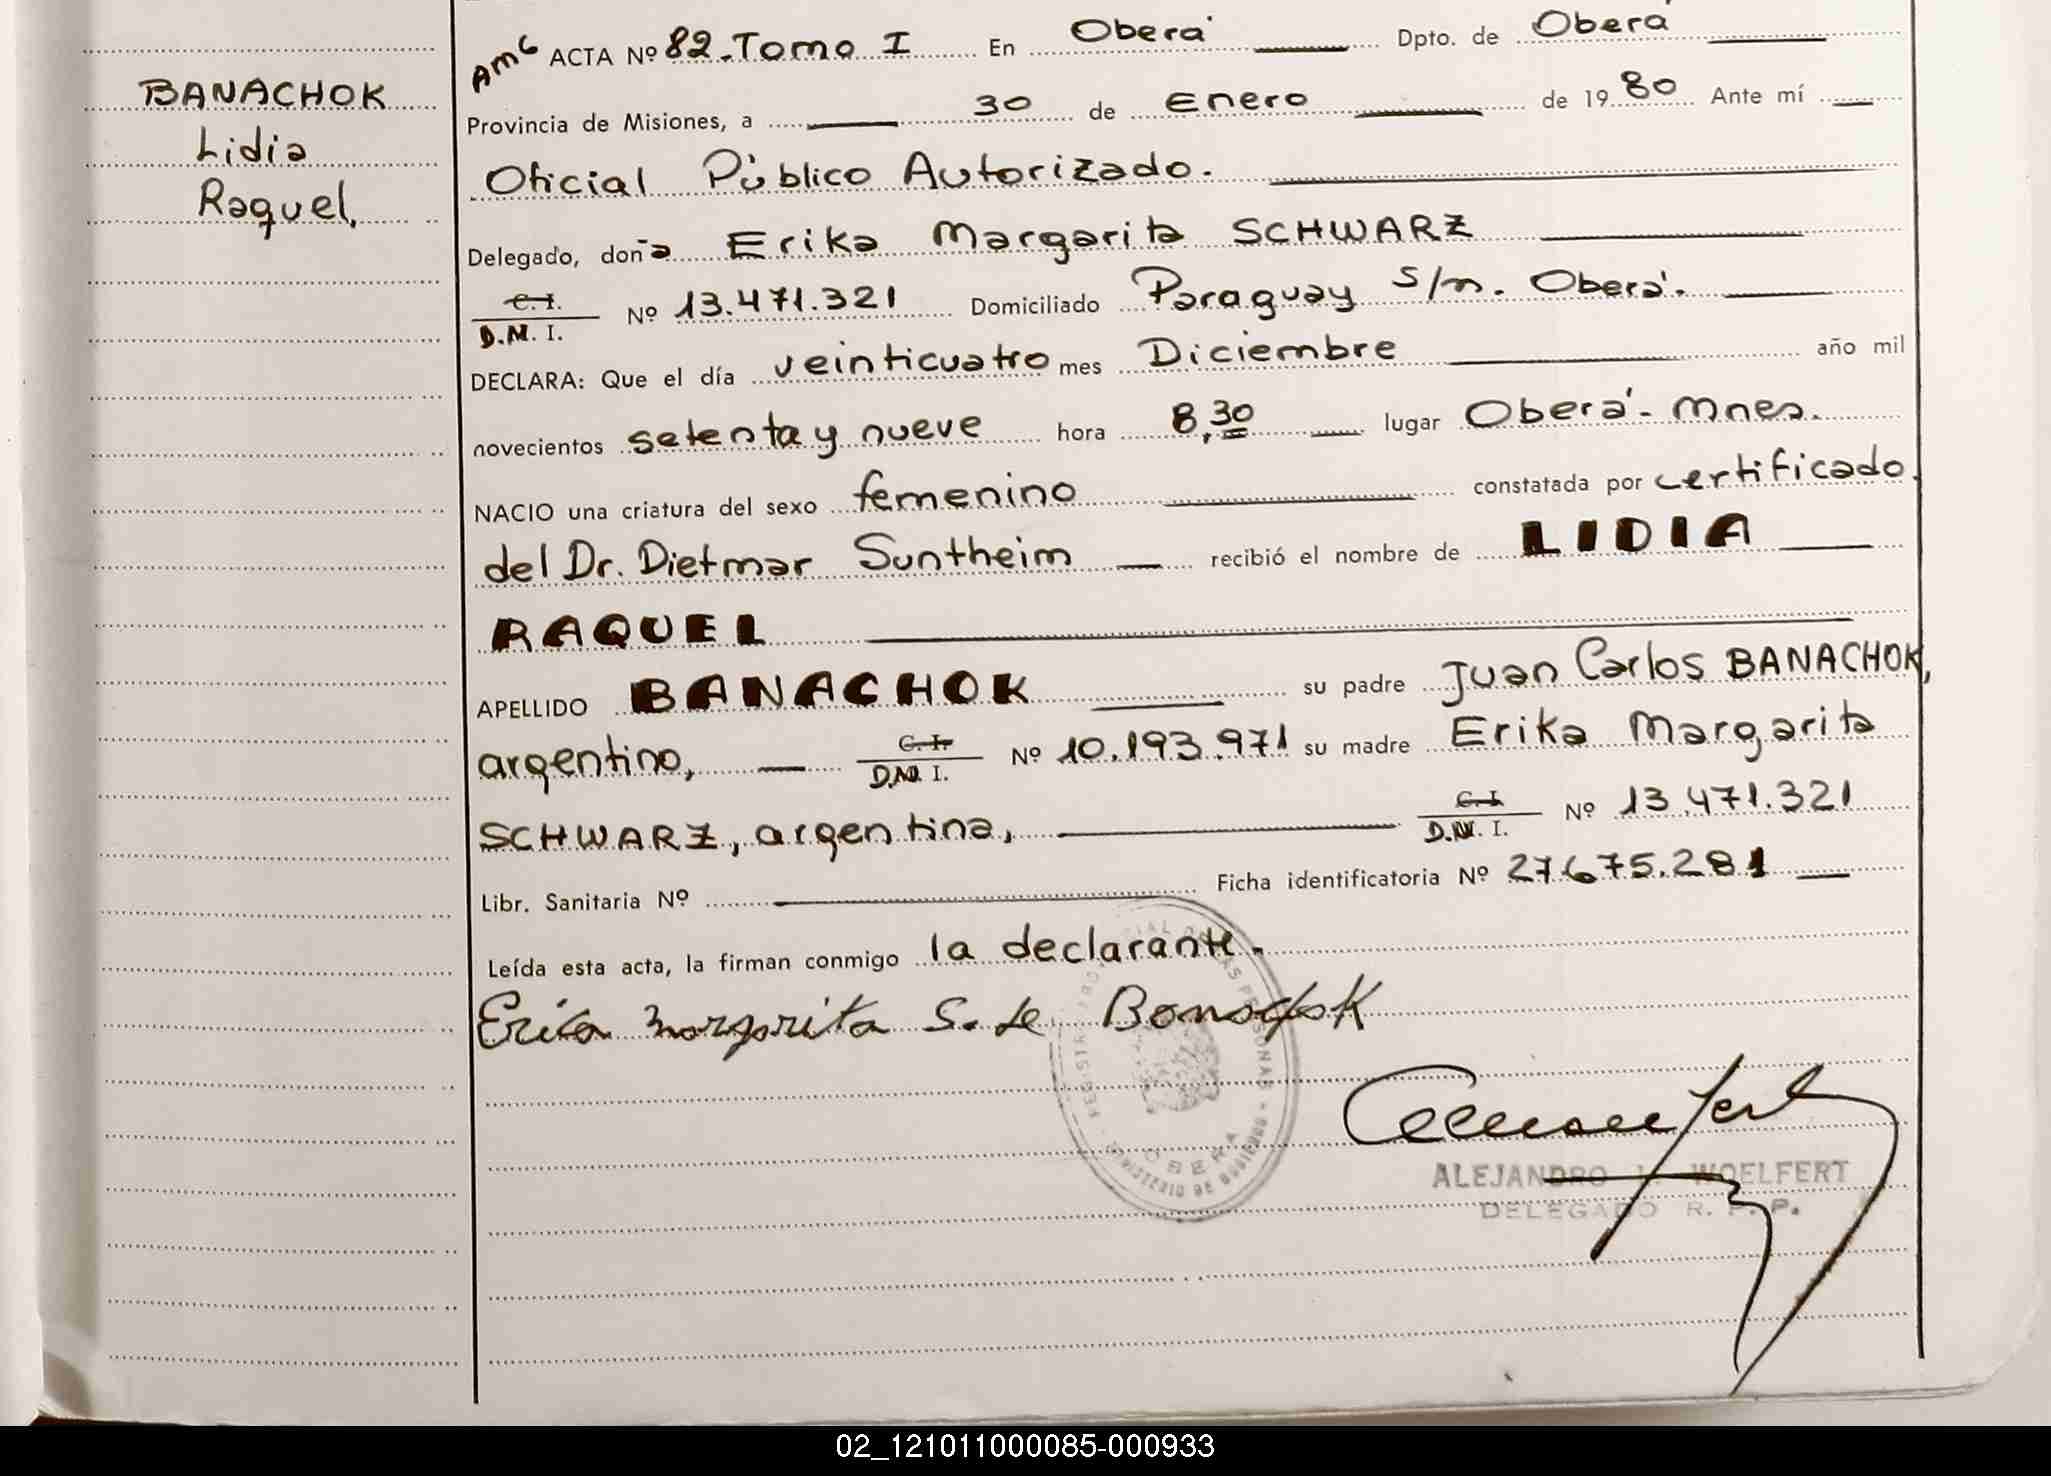 BANACHOK
Lidia
Raquel,
AMG ACTA Nº 82-Tomo I En Oberá Dpto. de Oberá
Provincia de Misiones, a 30 de Enero de 1980 Ante mí
Oficial Público Autorizado.
Delegado, doña Erika Margarita SCHWARZ
C.I.
D.N.I. Nº 13.471.321 Domiciliado Paraguay s/n. Oberá.
DECLARA: Que el día veinticuatro mes Diciembre año mil
novecientos setenta y nueve hora 8,30 lugar Oberá-Mnes.
NACIO una criatura del sexo femenino constatada por certificado
del Dr. Dietmar Suntheim recibió el nombre de LIDIA
RAQUEL
APELLIDO BANACHOK su padre Juan Carlos BANACHOK,
argentino, C.I. D.N.I. Nº 10.193.971 su madre Erika Margarita
SCHWARZ, argentina, C.I. D.N.I. Nº 13.471.321
Libr. Sanitaria Nº Ficha identificatoria Nº 27.675.281
Leída esta acta, la firman conmigo la declarante.
Erica Margarita S. de Banachok
OBERA
ALEJANDRO WOELFERT
DELEGADO R. P. P.
02_121011000085-000933